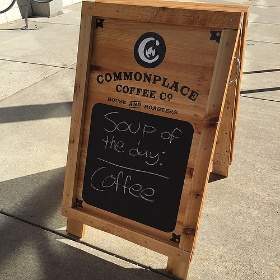 C
COMMONPLACE
COFFEE CO
HOUSE AND ROASTERS
Soup of
the day:
Coffee